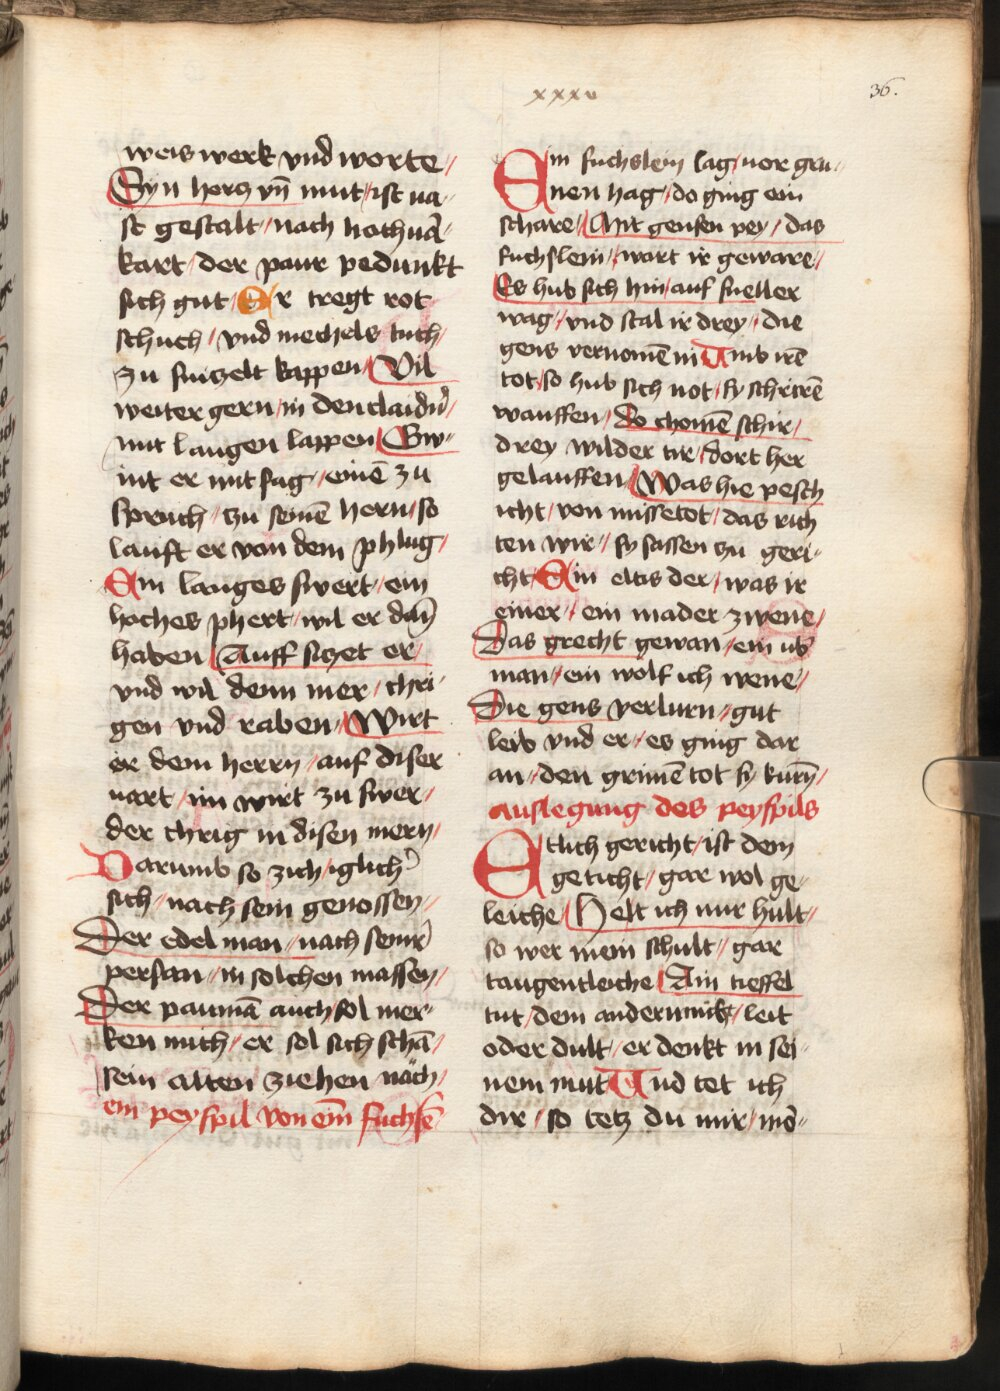 xxxv
36.
weis werk vnd worte //
Syn hercz vñ mut / ist va-
st gestalt / nach hochuā-
kart / der paur pedunkt
sich gut / Er tregt rot
schuch / vnd mechels tuch /
zu sniczelt kappen / Vil
weiter gern / in den claidn̄ /
mit langen lappen / Gw-
int er mit sag / einē zu
spruch / zu seinē hern / so
lauft er von dem phlug /
Ein langes swert / ein
hoches phert / wil er dan̄
haben / Auff siczet er /
vnd wil denn mer / chri-
gen vnd raben / Wirt
er dem herrn / auf diser
vart / im wirt zu swer /
der chrig in disen mern /
Darumb so zich / iglich̄
sich / nach sein genossen /
Der edel man / nach seinr̄
persan / in solchen massen /
Der paumā auch / sol mer-
ken mich / er sol sich schā /
sein alten ziehen / nach /
ein peyspil von eim̄ fuchsē
Ein fuchslein lag / vor gru-
nen hag / do ging ein
schare / Mit gensen pey / das
fuchslein / wart ir geware /
Es hub sich hin / auf sneller
wag / vnd stal ir drey / die
gens vernomē in Umb irē
tot / so hub sich not / sy schrirē
wauffen / Do chomē schir /
drey wilder tir / dort her
gelauffen / Was hie pesch
icht / von missetot / das rich
ten wir / sy sassen zu geri-
cht / Ein eltis der / was ir
einer / ein mader zwene /
Das grecht gewan / ein ub̄
man / ein wolf ich wene /
Die gens verlurn / gut
leib vnd er / es ging dar
an / den grimē tot sy kurn̄ /
auslegung des peyspils
Etlich gericht / ist dem
geticht / gar wol ge-
leiche / Helt ich nur hult /
so wer mein schult / gar
taugentleiche / Ain tieffel
tut / dem andern nicht / leit
oder dult / er denkt in sei-
nem mut Und tet ich
dir / so tetz du mir / mō-